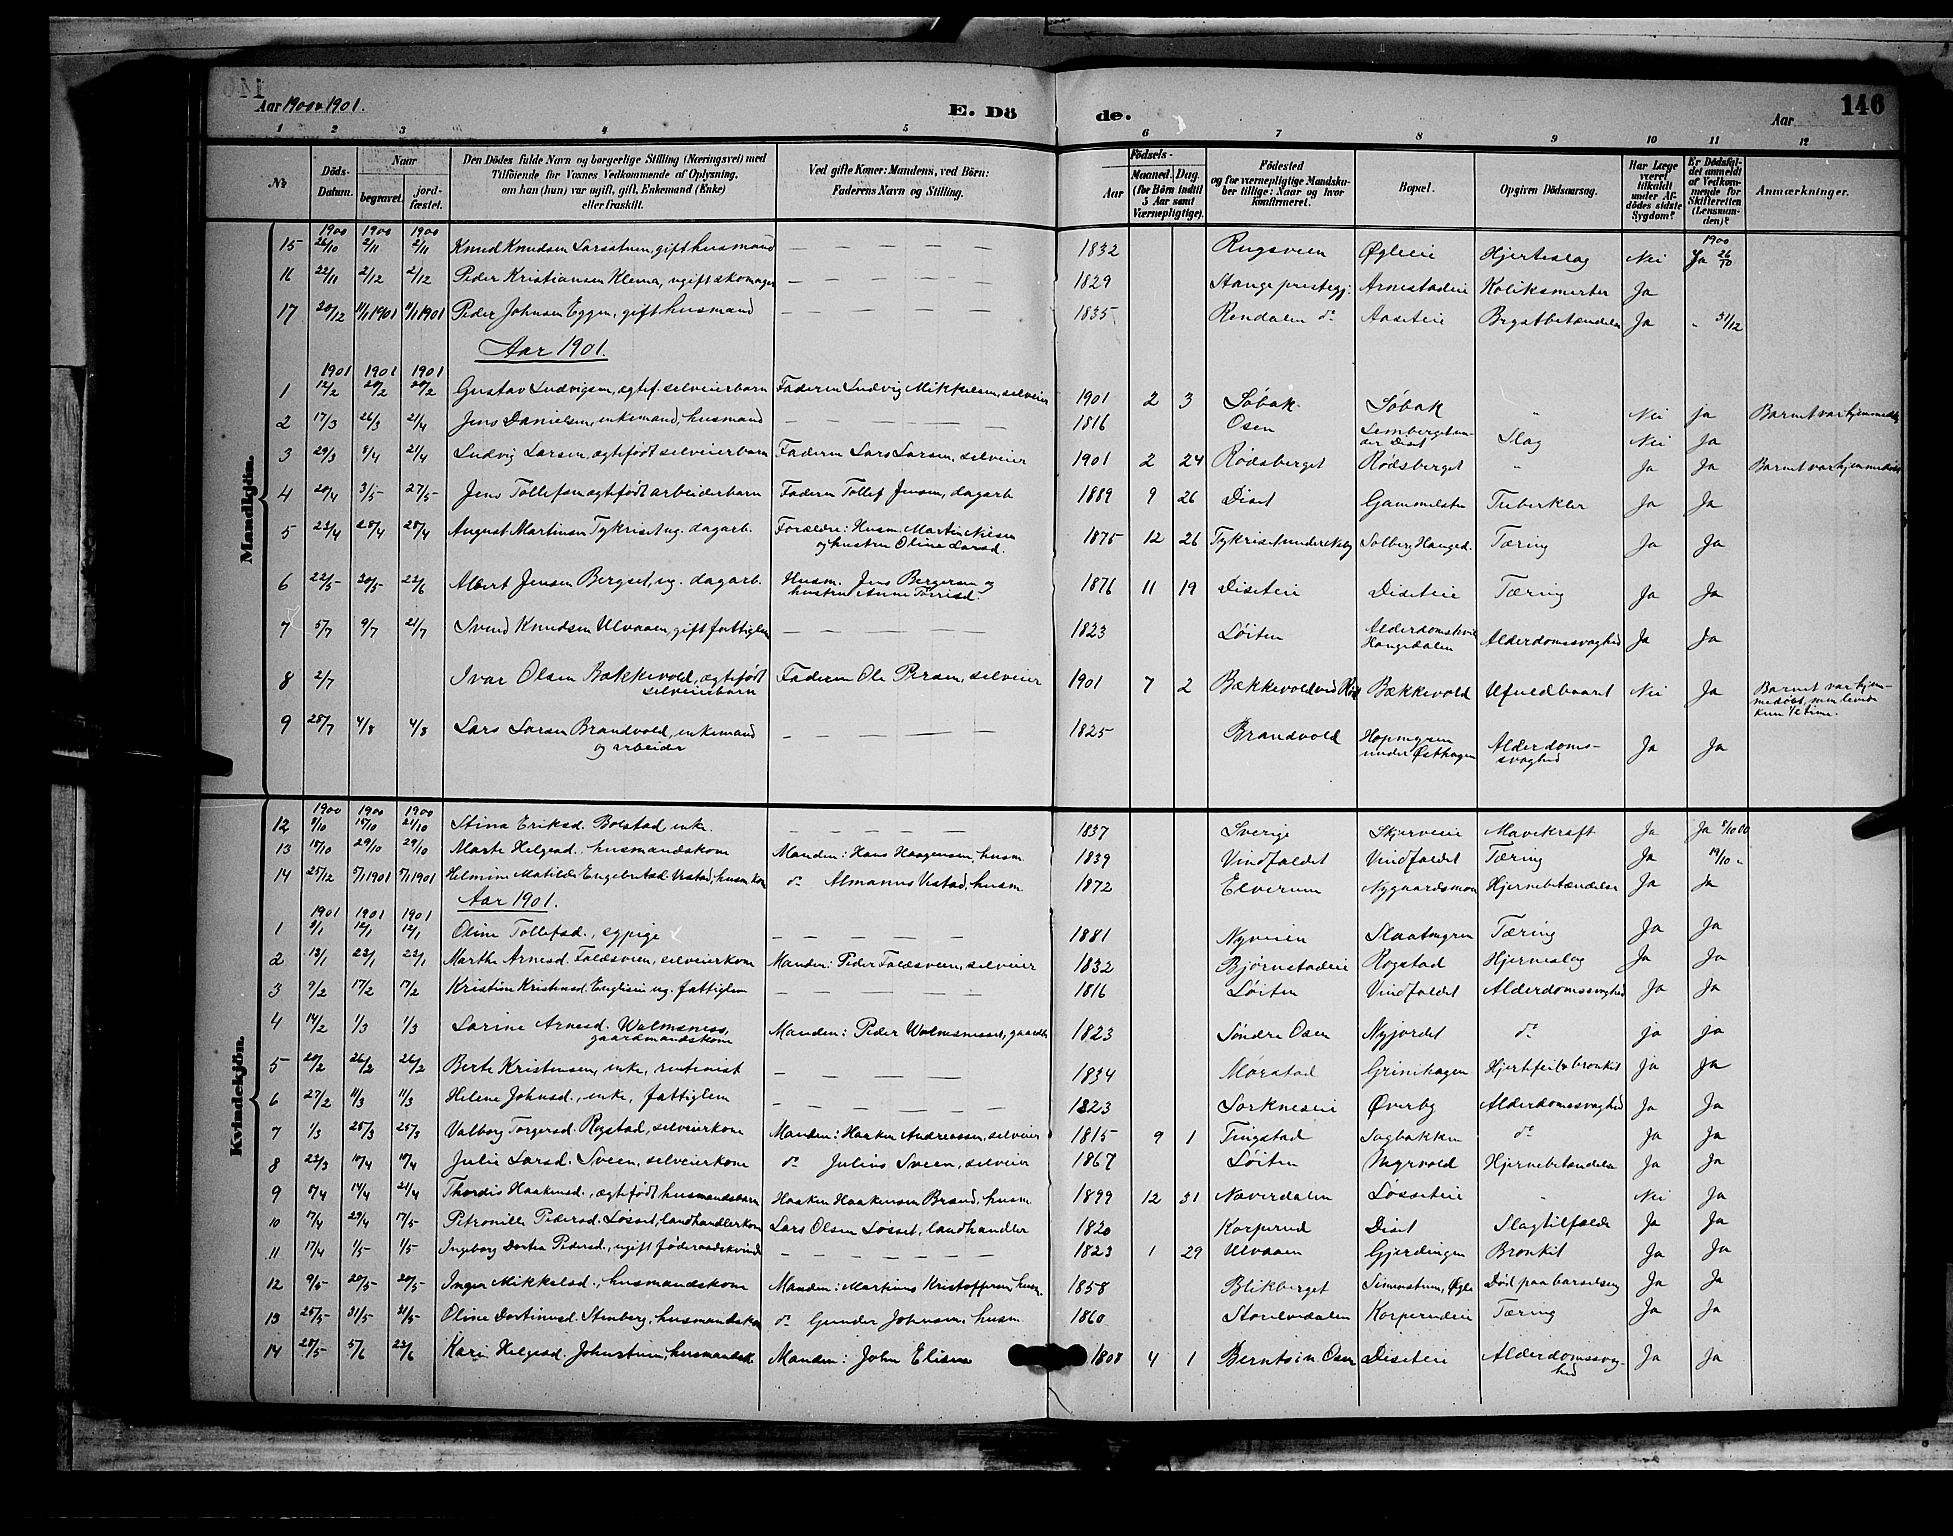 Aar 1900 & 1901. E. Dö de. Aar 146
1 2 3 4 5 6 7 8 9 10 11 12
No Döds-Datum. Naar begravet. jord-fæstet. Den Dödes fulde Navn og borgerlige Stilling (Næringsvei) med Tilföiende for Voxnes Vedkommende af Oplysning, om han (hun) var ugift, gift, Enkemand (Enke) eller fraskilt. Ved gifte Koner: Mandens, ved Börn: Faderens Navn og Stilling. Födsels- Aar Maaned. Dag. (for Börn indtil 5 Aar samt Værnepligtige). Födested og for værnepligtige Mandskaber tillige: Naar og hvor konfirmeret. Bopæl. Opgiven Dödsaarsag. Har Læge været tilkaldt under Afdödes sidste Sygdom? Er Dödsfaldet anmeldt af Vedkommende for Skifteretten (Lensmanden)? Anmærkninger.
Mandkjön.
1900 1900 1900 1900
15 26/10 2/11 2/11 Knud Knudsen Larsstuen, gift husmand — — — — — 1832 Rugsveen Øgleeie Hjerteslag Nei Ja 26/10
16 22/11 2/12 2/12 Peder Kristiansen Klema, ugift skomager — — — — — 1829 Stange prestegj. Arnestadeie Koliksmerter Ja
17 20/12 11/1 1901 11/1 1901 Peder Johnsen Eggen, gift husmand — — — — — 1835 Rendalen do Aaseteie Brystbetændelse Ja " 31/12
Aar 1901.
1901 1901 1901
1 12/2 20/2 20/2 Gustav Ludvigsen, egtef. selveierbarn Faderen Ludvig Mikkelsen, selveier 1901 2 3 Søbak Søbak " Nei ja Barnet var hjemmedøbt
2 17/3 26/3 21/4 Jens Danielsen, enkemand, husmand — — — — — 1816 Osen Lemberget under Diset Slag Nei Ja
3 29/3 8/4 21/4 Ludvig Larsen, egtefødt selveierbarn Faderen Lars Larsen, selveier 1901 2 24 Rødsberget Rødsberget " Ja Ja Barnet var hjemmedøbt
4 20/4 3/5 27/5 Jens Tollefsen egtefødt arbeiderbarn Faderen Tollef Jensen, dagarb. 1889 9 26 Diset Gammelsten Tuberkler Ja Ja
5 23/4 28/4 28/4 August Martinsen Tykriset ug. dagarb. Forældre: Husm. Martin Nilsen og hustru Oline Larsd. 1875 12 26 Tykriset under Næby Solberg Hanged. Tæring Ja Ja
6 22/5 30/5 22/6 Albert Jensen Bergset, ug. dagarb. Husm. Jens Bergersen og hustru Anne Torrisd. 1876 11 19 Diseteie Diseteie Tæring Ja Ja
7 5/7 9/7 21/7 Svend Knudsen Ulvaaen, gift fattiglem — — — — — 1823 Løiten Alderdomshvile Hangedalen Alderdomssvaghed Ja Ja
8 2/7 Ivar Olsen Bækkevold, egtefødt selveierbarn Faderen Ole Persen, selveier 1901 7 2 Bækkevold ved Bækkevold Ufuldbaaret Nei Ja Barnet var hjemmedøbt, men levede kun 1/2 time.
9 28/7 4/8 4/8 Lars Larsen Brandvold, enkemand og arbeider — — — — — 1825 Brandvold Hopmyren under Østhagen Alderdoms-svaghed Ja Ja
Kvindekjön.
1900 1900 1900
12 8/10 15/10 21/10 Stina Eriksd. Bolstad enke. — — — — — 1837 Sverige Skjerveeie Mavekræft Ja Ja 8/10 00
13 18/10 29/10 29/10 Marte Helgesd. husmandskone Manden: Hans Haagensen, husm. 1839 Vindfaldet Vindfaldet Tæring Ja 19/10 "
14 25/12 5/1 1901 5/1 1901 Helmine Matilde Engebretsd. Vestad, husm. kone do Almanus Vestad, husm. 1872 Elverum Nygaardsmoen Hjernebetændelse Ja Ja
Aar 1901.
1901 1901 1901
1 3/1 12/1 12/1 Oline Tollefsd., sypige — — — — — 1881 Nyveien Slaatmyren Tæring Ja Ja
2 13/1 23/1 23/1 Marthe Arnesd. Faldsveen, selveierkone Manden: Peder Faldsveen, selveier 1832 Bjørnstadeie Rogstad Hjerneslag Ja Ja
3 9/2 17/2 17/2 Kristine Kristensd. Englieie ug. fattiglem — — — — — 1816 Løiten Vindfaldet Alderdomssvaghed Ja Ja
4 14/2 1/3 1/3 Karine Arnesd. Walmsness, gaardmandskone Manden: Peder Walmsnesset, gaardbr. 1823 Søndre Osen Nyjordet do ja ja
5 20/2 26/2 26/2 Berte Kristensen, enke, rentenist — — — — — 1834 Mørstad Grinehagen Hjertefeil & bronkit ja Ja
6 27/2 11/3 11/3 Helene Johnsd., enke, fattiglem — — — — — 1823 Sorkneseie Øverby Alderdomssvaghed Ja Ja
7 1/3 25/3 25/3 Valborg Torgersd. Rogstad, selveierkone Manden: Haaken Andreassen, selveier 1815 9 1 Tingstad Sagbakken do Ja Ja
8 23/3 10/4 10/4 Julie Larsd. Sveen, selveierkone do Julius Sveen, selveier 1867 Løiten Myrvold Hjernebetændelse Ja Ja
9 8/4 14/4 21/4 Thordis Haakensd., egtefødt husmandsbarn Haaken Haakensen Brænd, husm. 1899 12 31 Næverdalen Løsseteie " Nei Ja
10 17/4 29/4 17/5 Petronille Pedersd. Løsset, landhandlerkone Lars Olsen Løsset, landhandler 1820 Korperud Diset Slagtilfælde Ja Ja
11 17/4 1/5 1/5 Ingeborg Dortea Pedersd., ugift føderaadskvinde — — — — — 1823 1 29 Ulvaaen Gjerdingen Bronkit Ja Ja
12 9/5 20/5 20/5 Inger Mikkelsd., husmandskone Manden: Martinus Kristoffersen, husm. 1858 Blikberget Simenstuen, Øgle Død paa barselseng Ja Ja
13 25/5 31/5 31/5 Oline Dortinusd. Stenberg, husmandskone do Gunder Johnsen, husm. 1860 Storelvdalen Korperudeie Tæring Ja Ja
14 28/5 5/6 23/6 Kari Helgesd. Johnstuen, husmandsk. Manden: John Elisen 1808 4 1 Berntsin Osen Diseteie Alderdomssvag-hed Ja Ja